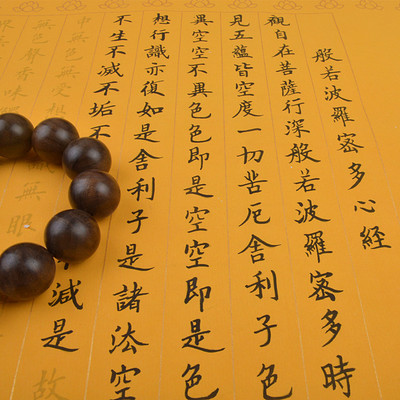 般若波羅蜜多心經
觀自在菩薩行深般若波羅蜜多時
見五蘊皆空度一切苦厄舍利子色
異空空不異色色即是空空即是色
想行識亦復如是舍利子是諸法空
不生不滅不垢不減是故
中無色無受想無眼
無色聲香味